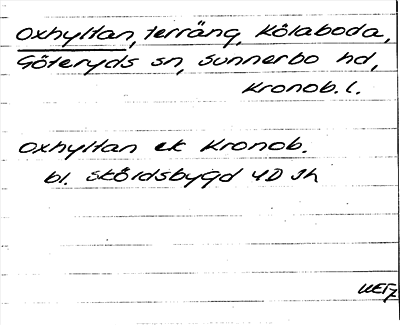 Oxhyltan, terräng, Kölaboda,
Göteryds sn, Sunnerbo hd,
Kronob. l.
Oxhyltan ek Kronob.
bl. Skördsbygd 4D Sh